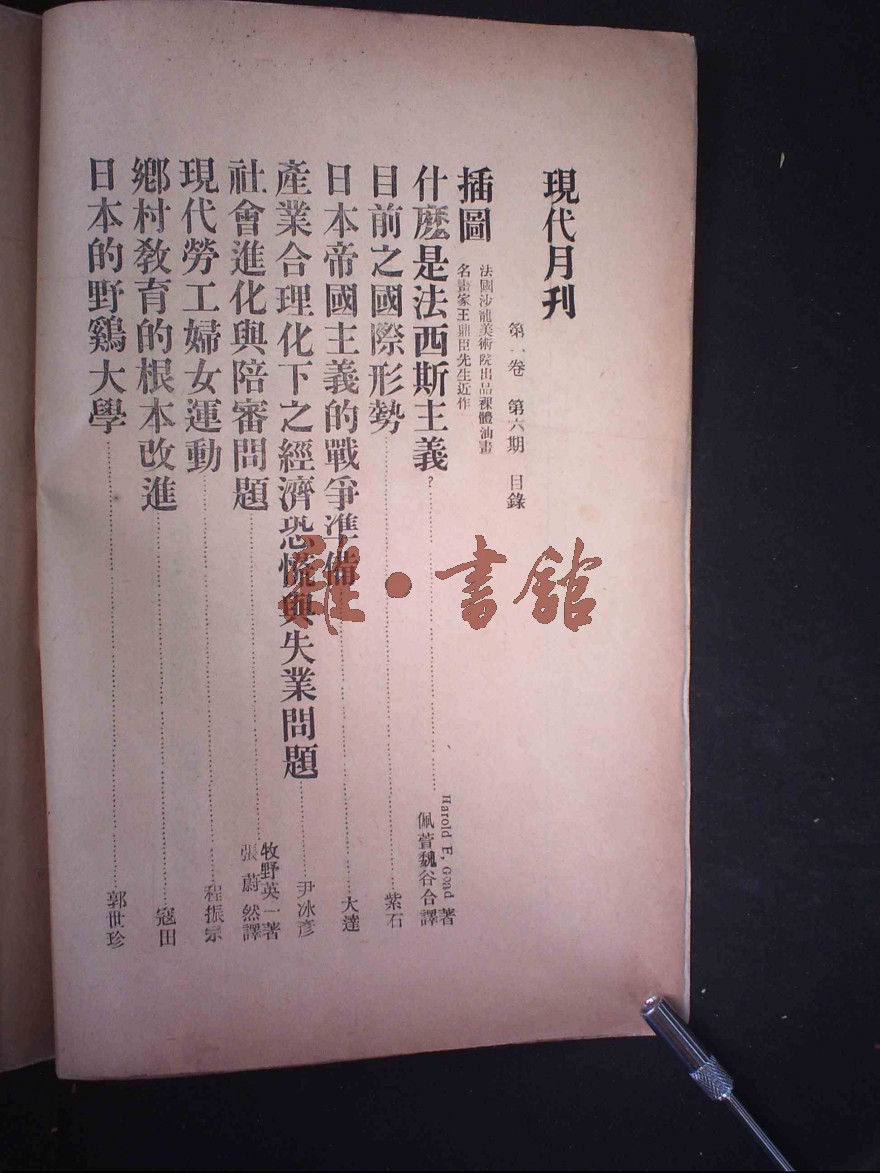 現代月刊
第一卷 第六期 目錄
插圖
法國沙龍美術院出品裸體油畫
名畫家王鼎臣先生近作
什麽是法西斯主義?……Harold E, Goad 著 佩萱魏谷合譯
目前之國際形勢……紫石
日本帝國主義的戰爭準備……大達
產業合理化下之經濟恐慌與失業問題……尹冰彥
社會進化與陪審問題……牧野英一著 張蔚然譯
現代勞工婦女運動……程振宗
鄉村敎育的根本改進……寇田
日本的野鷄大學……郭世珍
雜·書館